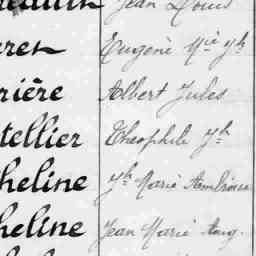 Jean Louis
Eugène Mie Jh
rière Albert Jules
tellier Théophile Jh
heline Jh Marie Ambroise
heline Jean Marie Aug.